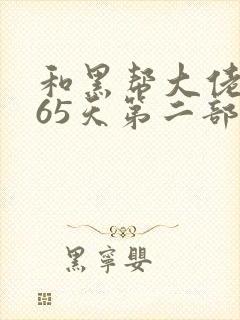 和黑帮大佬
65天第二部
黑寧嬰